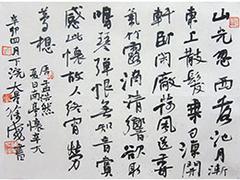 山光忽西落池月漸
東上散髮乘夕涼開
軒臥閑敞荷風送香
氣竹露滴清響欲取
鳴琴彈恨無知音賞
感此懷故人終宵勞
夢想
唐孟浩然
夏日南亭懷辛大
辛卯四月下浣
書